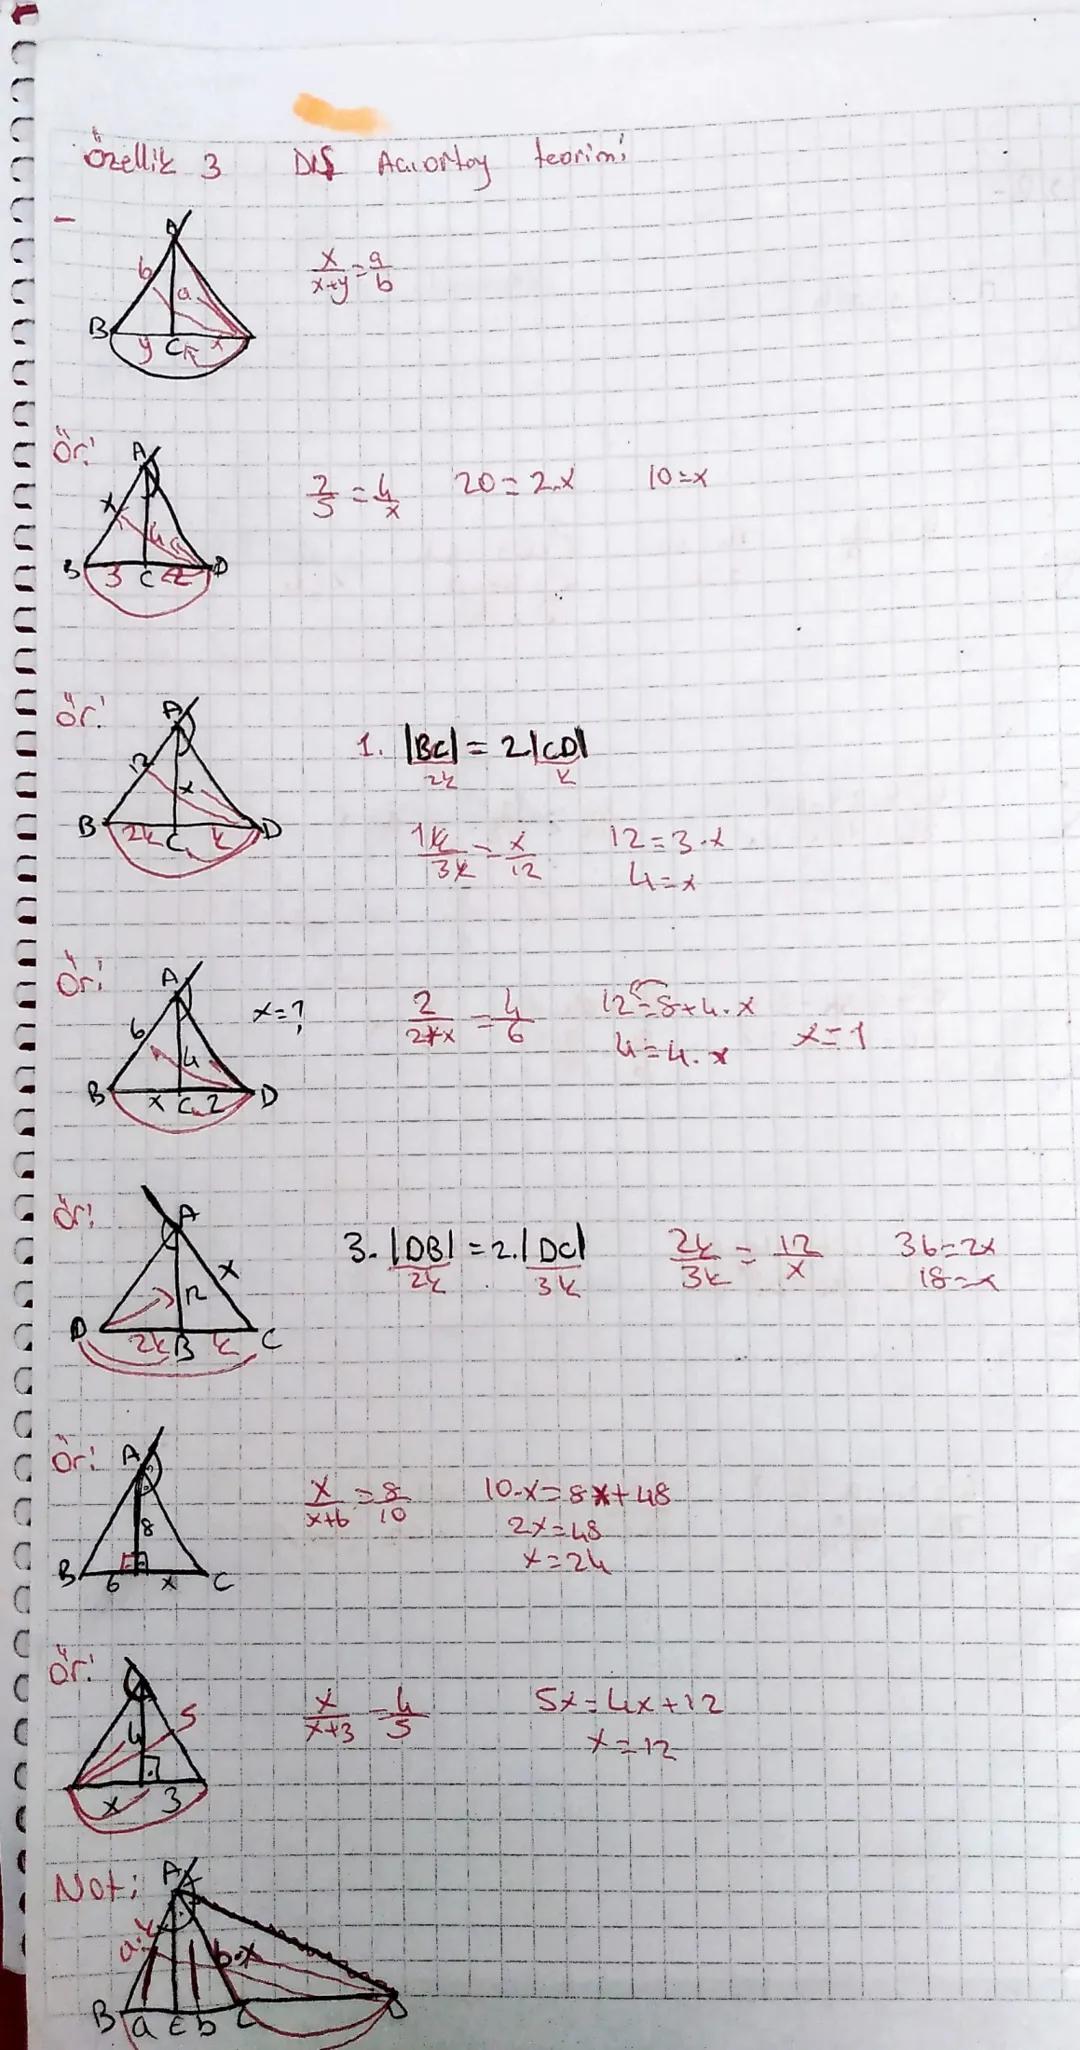 Özellik 3 DIŞ Açıortay teorimi
A
b
a
B y C x
x/x+y = a/b
Ör:
A
x
4
B 3 C 2 D
2/5 = 4/x 20 = 2.x 10 = x
Ör:
A
12
x
B 2k C k D
1. |BC| = 2|CD|
2k k
1k/3k = x/12 12 = 3.x
4 = x
Ör:
A
6
4
B x C 2 D
x = ?
2/2+x = 4/6 12 = 8+4.x x = 1
4 = 4.x
Ör:
A
x
12
D 2k B k C
3. |DB| = 2.|DC|
2k 3k
2k/3k = 12/x 36 = 2x
18 = x
Ör:
A
8
B 6 x C
x/x+6 = 8/10 10.x = 8x+48
2x = 48
x = 24
Ör:
4 5
x 3
x/x+3 = 4/5 5x = 4x+12
x = 12
Not:
A
a.x b.x
B a E b C D